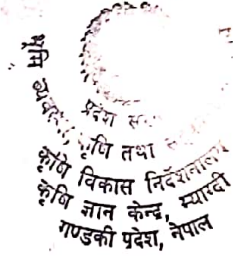 प्रदेश
भूमि
कृषि तथा
कृषि विकास निर्देशनालय
कृषि ज्ञान केन्द्र, म्याग्दी
गण्डकी प्रदेश, नेपाल